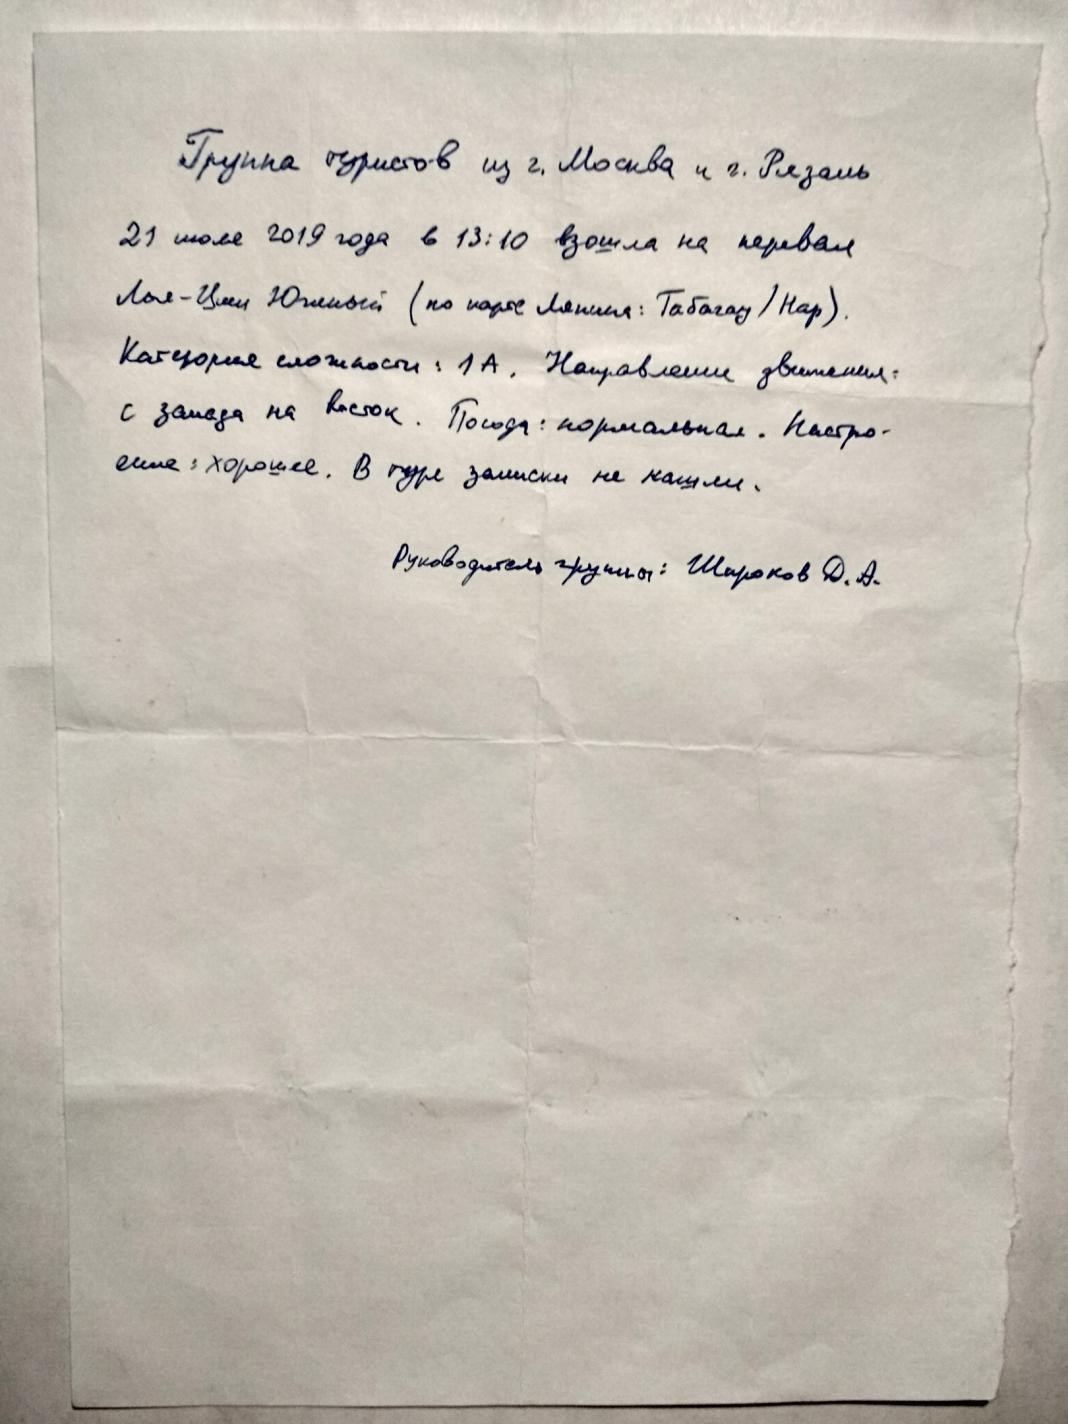 Группа туристов из г. Москва и г. Рязань
21 июля 2019 года в 13:10 взошла на перевал
Лыя-Цми Южный (по карте Ляпина: Табагау/Нар).
Категория сложности: 1А. Направление движения:
с запада на восток. Погода: нормальная. Настро-
ение: хорошее. В туре записки не нашли.
Руководитель группы: Широков Д.А.